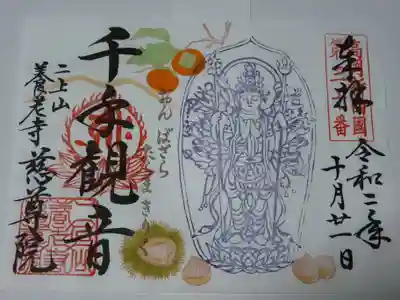 奉拝
令和二年
十月廿一日
おんばざら
たらまきり
千手観音
二上山
養老寺 慈尊院